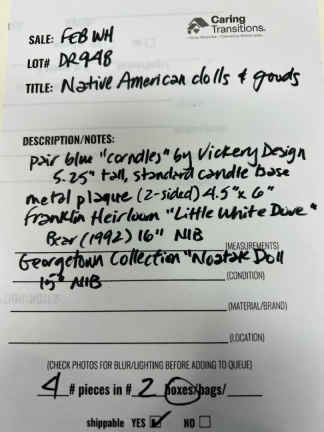 Caring
Transitions.
SALE: FEB WH
LOT# DR948
TITLE: Native American dolls & goods
DESCRIPTION/NOTES:
pair blue "candles" by Vickery Design
5.25" tall, standard candle base
metal plaque (2-sided) 4.5" x 6"
Franklin Heirloom "Little White Dove"
Bear (1992) 16" NIB
(MEASUREMENTS)
Georgetown Collection "Noatak Doll
(CONDITION)
15" NIB
(MATERIAL/BRAND)
(LOCATION)
(CHECK PHOTOS FOR BLUR/LIGHTING BEFORE ADDING TO QUEUE)
4 # pieces in # 2 boxes/bags/
shippable YES NO